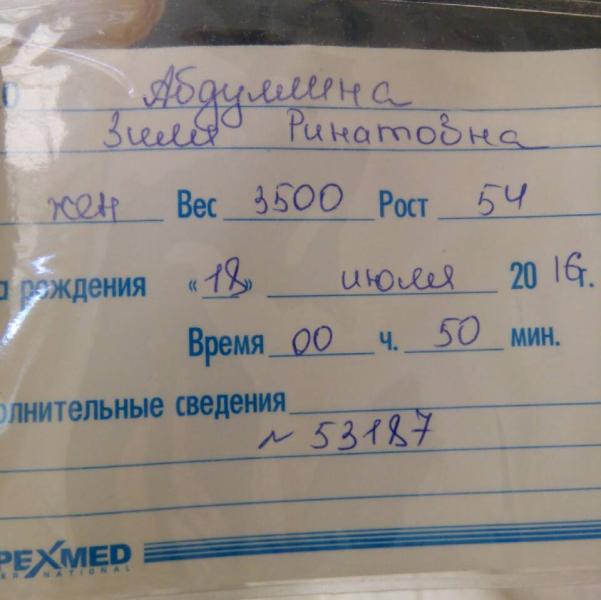 О Абдуллина
Зиля Ринатовна
жен Вес 3500 Рост 54
а рождения «18» июля 20 16г.
Время 00 ч. 50 мин.
олнительные сведения
~ 53187
PEXMED
ERNATIONAL